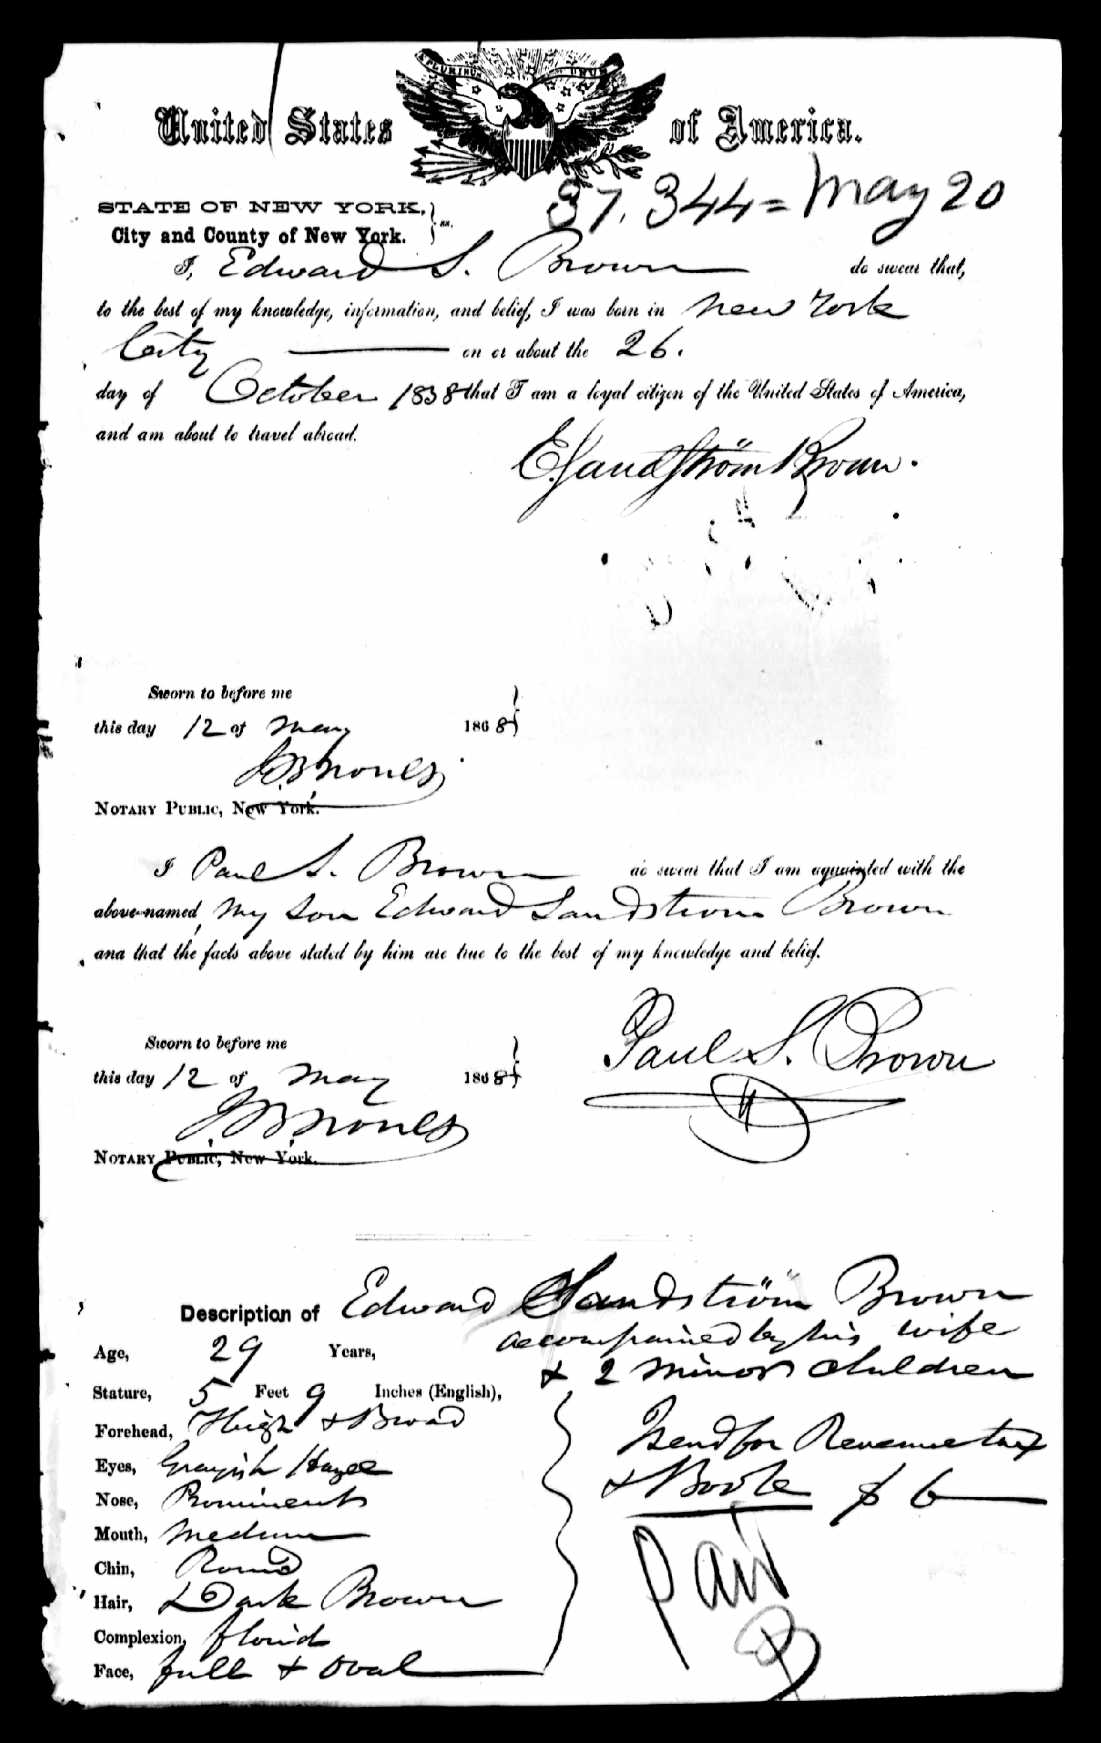 E PLURIBUS UNUM
United States of America.
37,344 = May 20
STATE OF NEW YORK,
City and County of New York. } ss.
I, Edward S. Brown do swear that,
to the best of my knowledge, information, and belief, I was born in New York
City on or about the 26.
day of October 1838 that I am a loyal citizen of the United States of America,
and am about to travel abroad.
E. Sandström Brown.
Sworn to before me
this day 12 of May 1868
J. B. Nones
NOTARY PUBLIC, New York.
I Paul S. Brown do swear that I am aquainted with the
above-named, my son Edward Sandstrom Brown
and that the facts above stated by him are true to the best of my knowledge and belief.
Sworn to before me
this day 12 of May 1868
Paul S. Brown
J. B. Nones
NOTARY PUBLIC, New York.
Description of Edward Sandström Brown
accompained by his wife
& 2 minor children
Age, 29 Years,
Stature, 5 Feet 9 Inches (English),
Forehead, High & Broad
Eyes, Grayish Hazel
Nose, Prominent
Mouth, Medium
Chin, Round
Hair, Dark Brown
Complexion, florid
Face, full & oval
Send for Revenue tax
& Book $6
Paid